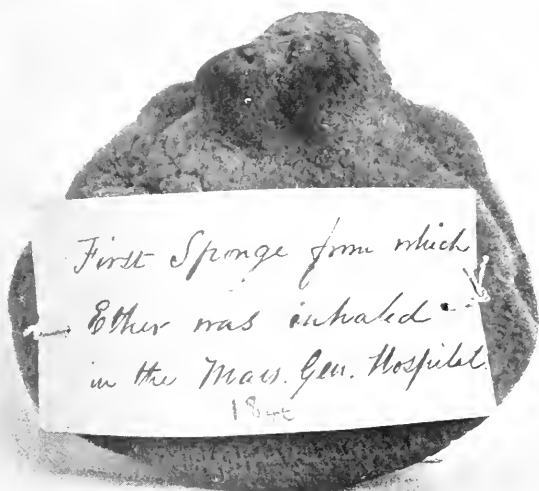 First Sponge from which
Ether was inhaled
in the Mass. Gen. Hospital.